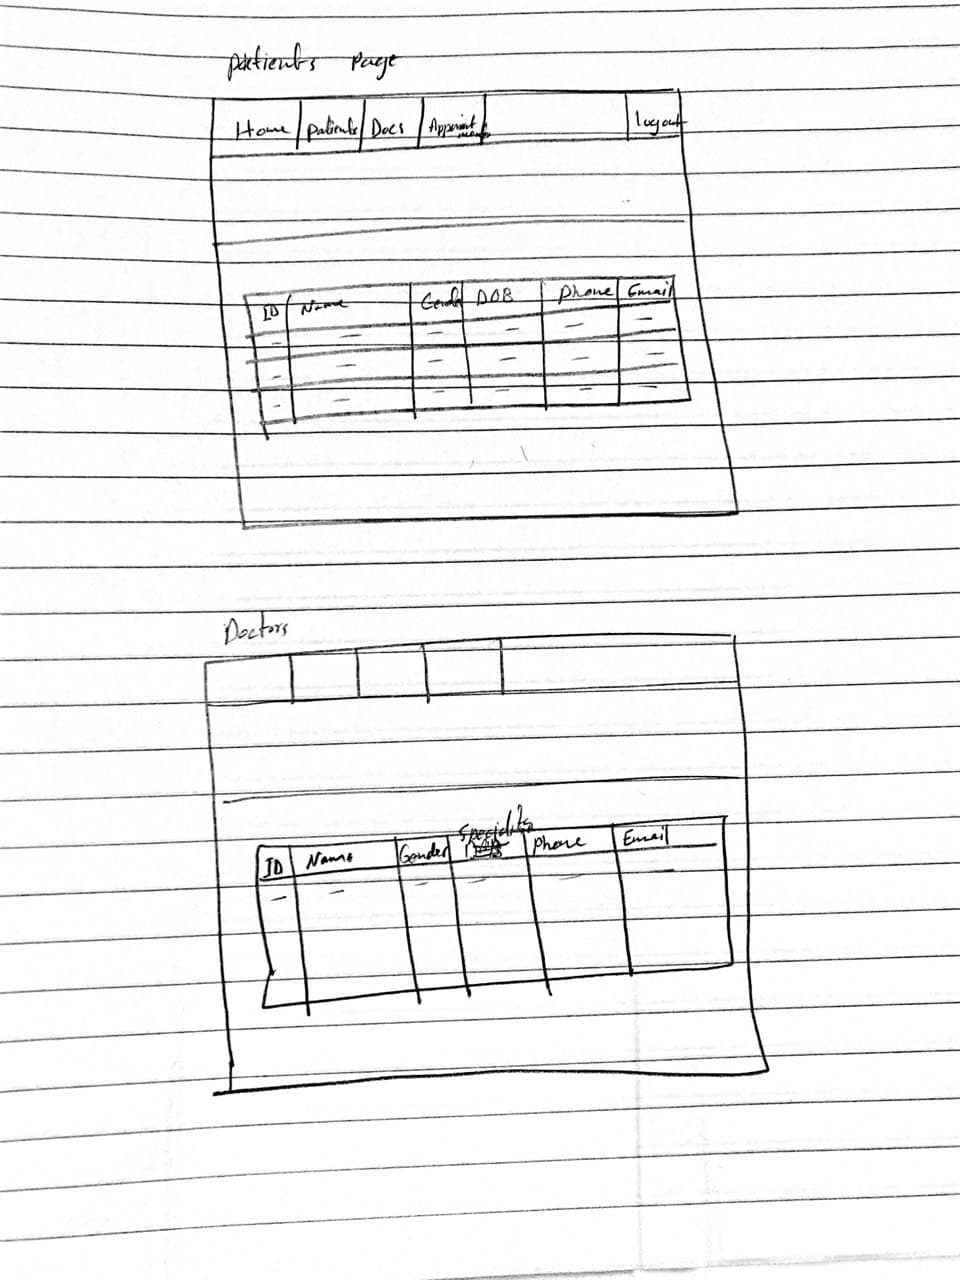 Patients Page
Home Patients Docs Appointments Logout
ID Name Gender DOB Phone Email
Doctors
ID Name Gender Phone Email